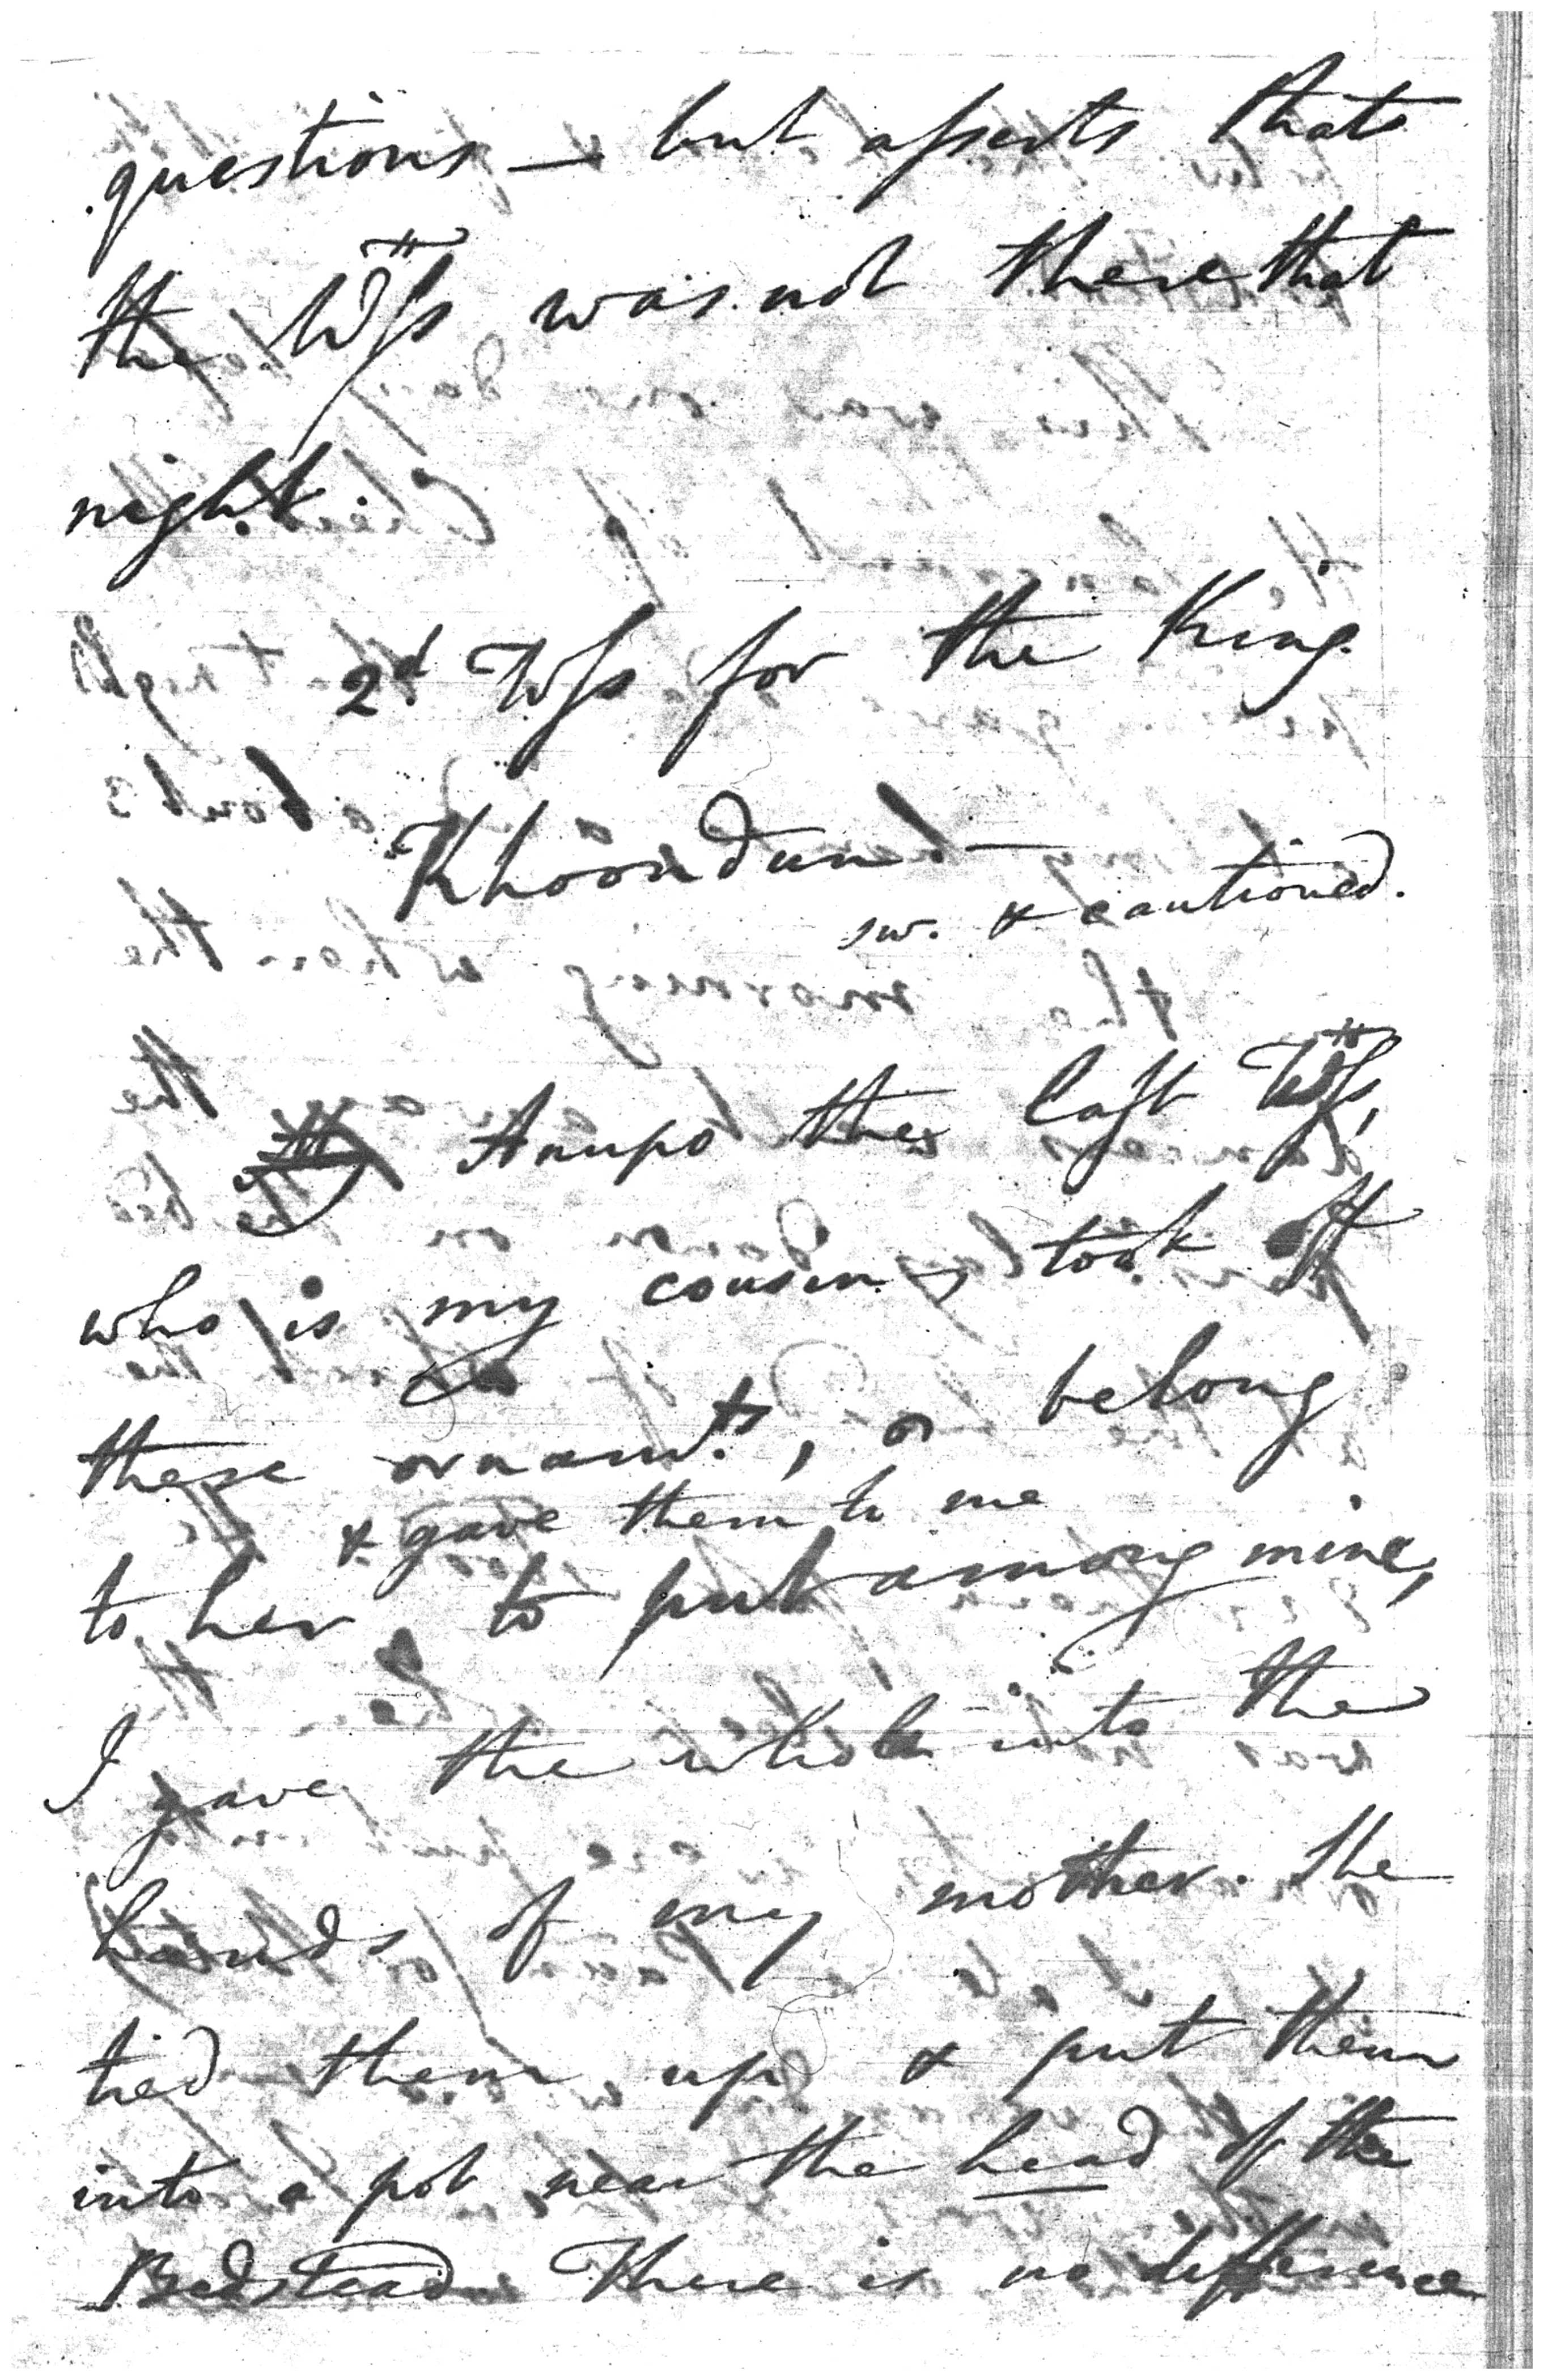 questions — but asserts that
the Wss was not there that
night.
2d. Wss for the King.
Khoordun —
sw. & cautioned.
Anupo the last Wss,
who is my cousin, took off
these ornamts, or belong
& gave them to me
to her to put among mine,
I gave the whole into the
hands of my mother. She
tied them up & put them
into a pot near the head of the
Bedstead. There is no difference